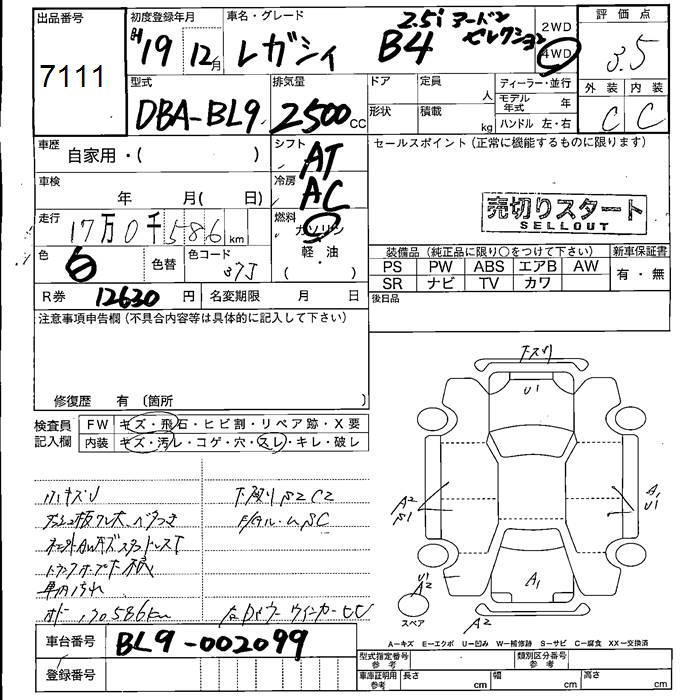 出品番号
7111
初度登録年月
H19 12月
車名・グレード
レガシィ B4
2.5i アーバンセレクション
2WD
4WD
評価点
3.5
外装 内装
C C
型式
DBA-BL9
排気量
2500cc
ドア
形状
定員 人
積載 kg
ディーラー・並行
モデル年式 年
ハンドル 左・右
車歴
自家用・( )
シフト
AT
セールスポイント(正常に機能するものに限ります)
車検
年 月( 日)
冷房
AC
売切りスタート
SELLOUT
走行
17万0千586km
燃料
ガソリン
軽・油
( )
色
色替
色コード
37J
装備品(純正品に限り○をつけて下さい)
新車保証書
PS PW ABS エアB AW
有・無
SR ナビ TV カワ
R券 12630円
名変期限 月 日
後日品
注意事項申告欄(不具合内容等は具体的に記入して下さい)
修復歴 有(箇所 )
検査員記入欄
FW キズ・飛石・ヒビ割・リペア跡・X要
内装 キズ・汚レ・コゲ・穴・スレ・キレ・破レ
下スリ
U1
A2
A1
U1
U1
A2
A1
A2
スペア
車台番号
BL9-002099
登録番号
A-キズ E-エクボ U-凹み W-補修跡 S-サビ C-腐食 XX-交換済
型式指定番号
参考
類別区分番号
参考
車庫証明用
参考
長さ cm
幅 cm
高さ cm